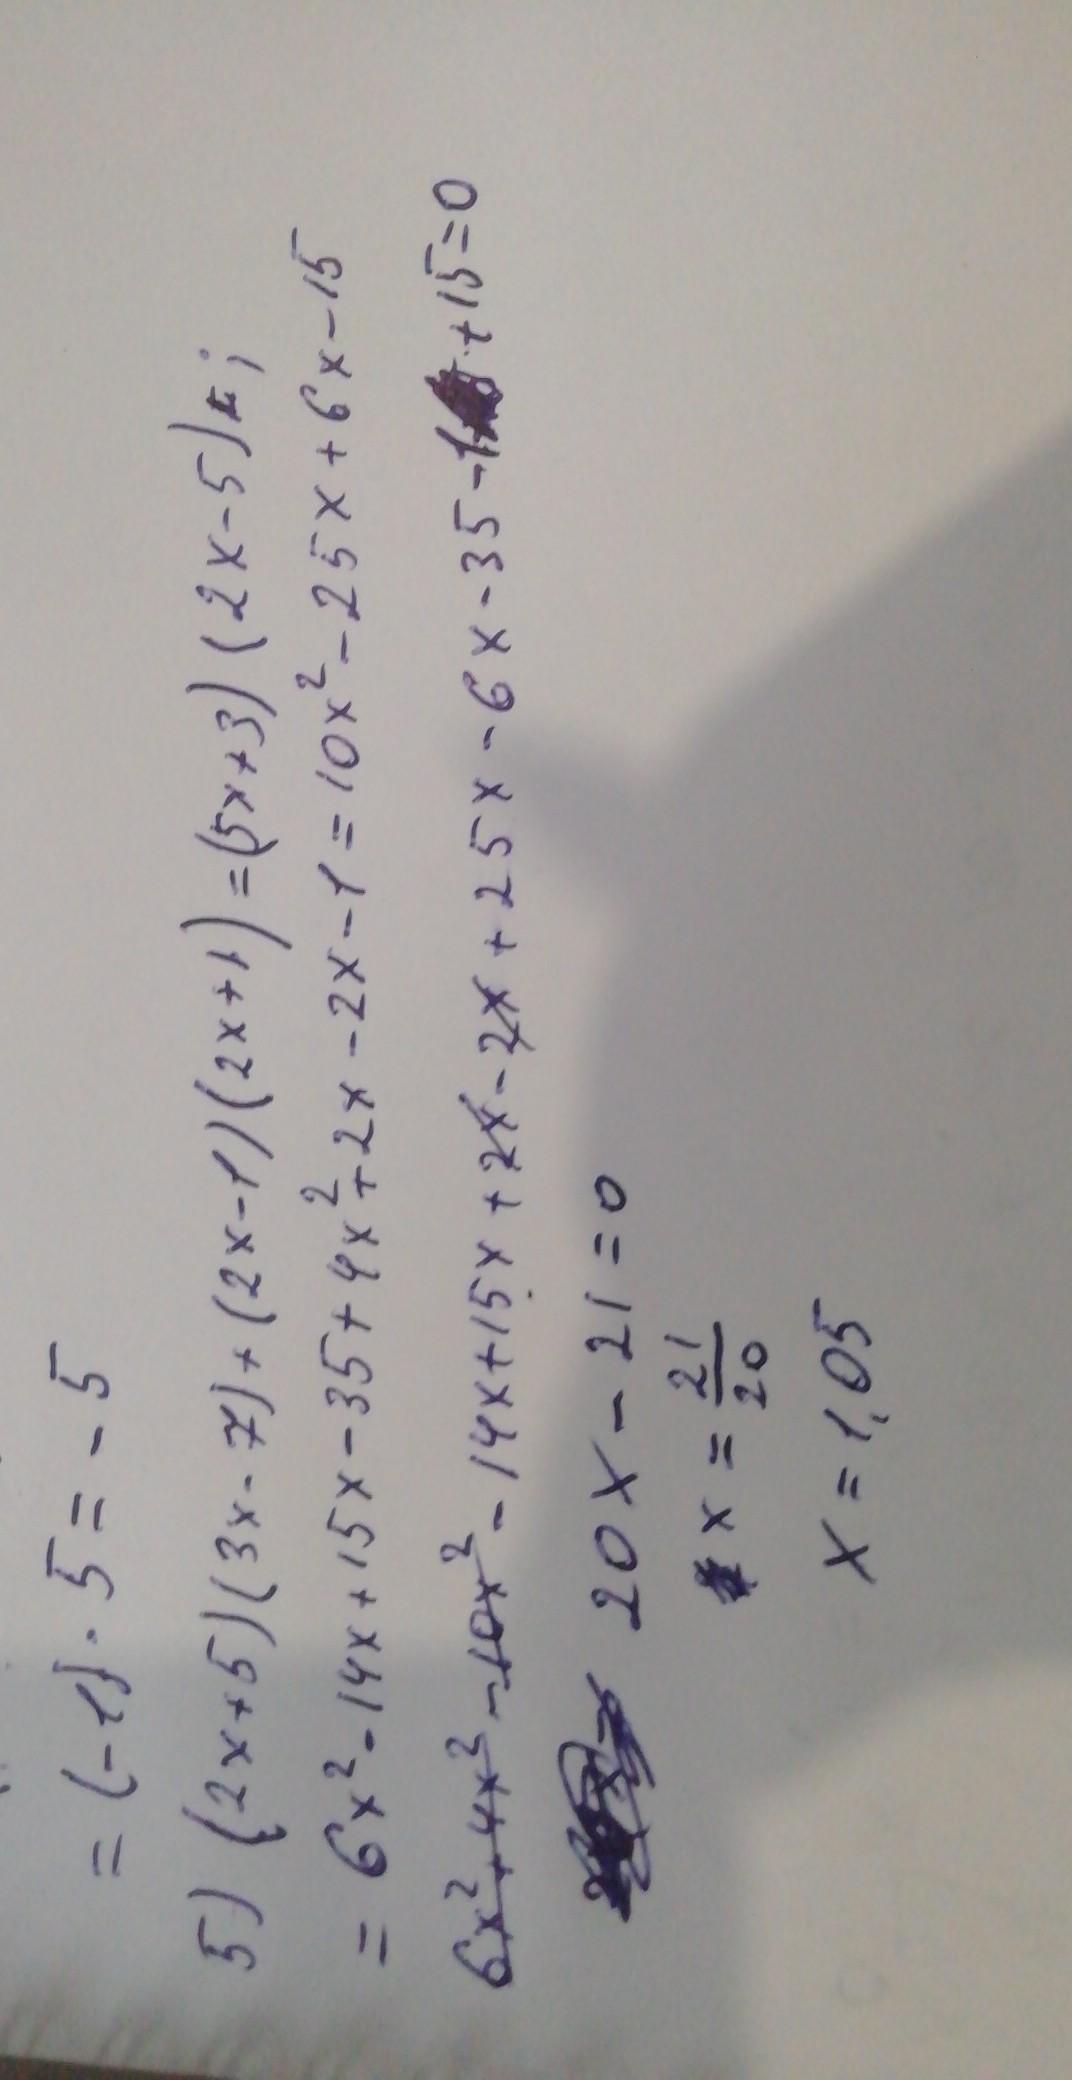 = (-1) · 5 = - 5
5) (2x+5)(3x-7)+(2x-1)(2x+1)=(5x+3)(2x-5);
= 6x²-14x+15x-35+4x²+2x-2x-1=10x²-25x+6x-15
6x²+4x²-10x²-14x+15x+2x-2x+25x-6x-35-1+15=0
20x-21=0
x = 21/20
x = 1,05